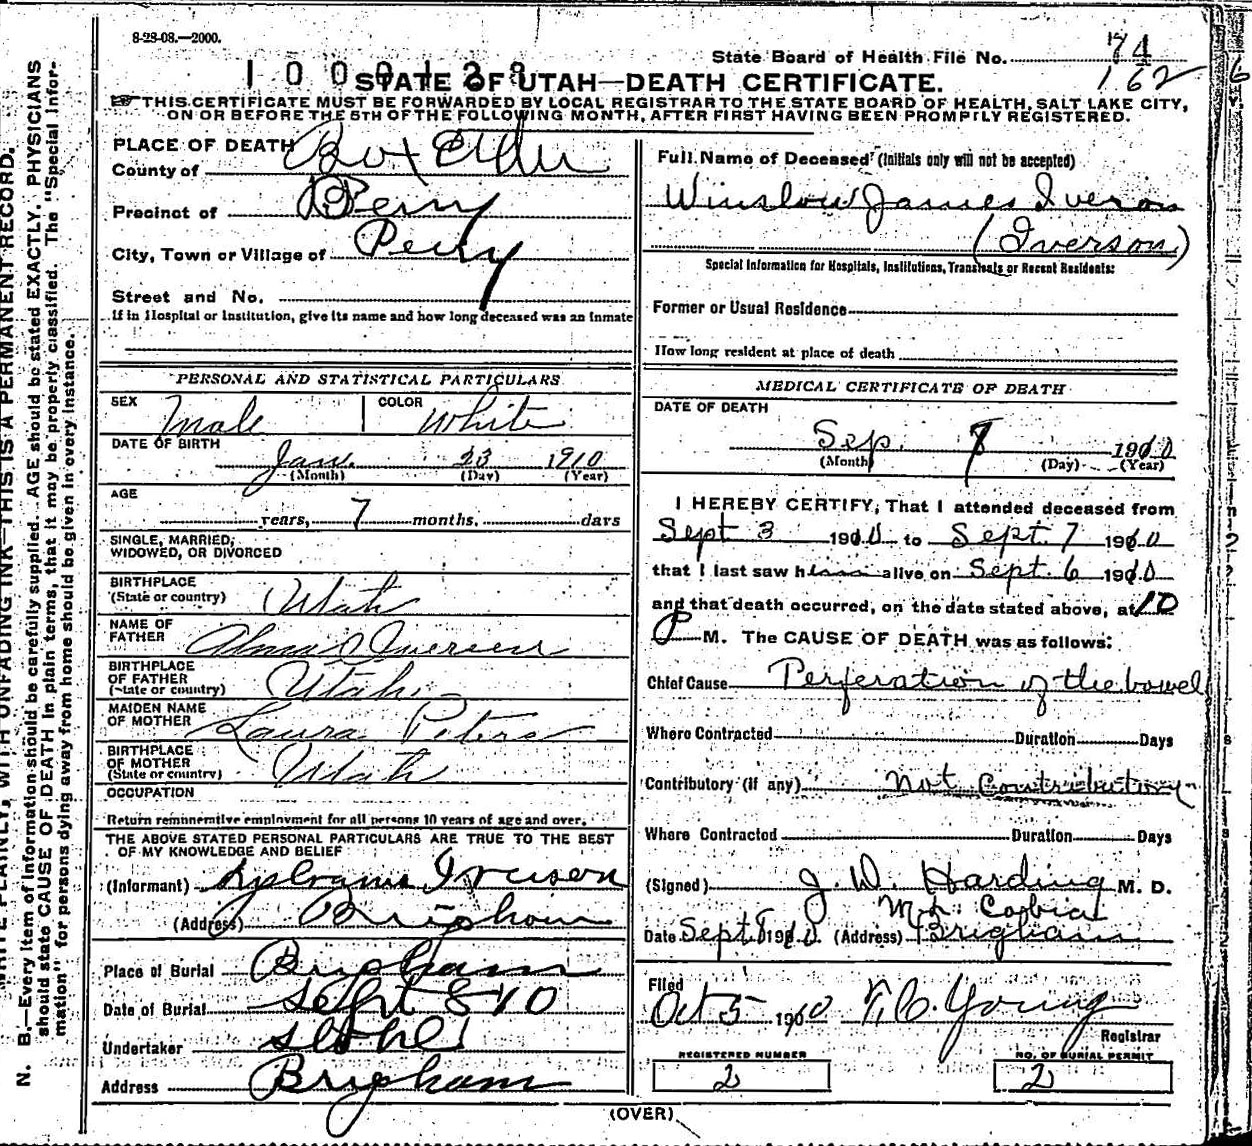 8-28-08.—2000.
State Board of Health File No. 74
162
1000138
STATE OF UTAH—DEATH CERTIFICATE.
THIS CERTIFICATE MUST BE FORWARDED BY LOCAL REGISTRAR TO THE STATE BOARD OF HEALTH, SALT LAKE CITY,
ON OR BEFORE THE 5TH OF THE FOLLOWING MONTH, AFTER FIRST HAVING BEEN PROMPTLY REGISTERED.
PLACE OF DEATH
County of Box Elder
Precinct of Perry
City, Town or Village of Perry
Street and No.
If in Hospital or Institution, give its name and how long deceased was an inmate
PERSONAL AND STATISTICAL PARTICULARS
SEX Male COLOR White
DATE OF BIRTH
Jan. 23 1910
(Month) (Day) (Year)
AGE
years, 7 months, days
SINGLE, MARRIED,
WIDOWED, OR DIVORCED
BIRTHPLACE
(State or country) Utah
NAME OF
FATHER Alma Iversen
BIRTHPLACE
OF FATHER
(State or country) Utah
MAIDEN NAME
OF MOTHER Laura Peters
BIRTHPLACE
OF MOTHER
(State or country) Utah
OCCUPATION
Return remunerative employment for all persons 10 years of age and over.
THE ABOVE STATED PERSONAL PARTICULARS ARE TRUE TO THE BEST
OF MY KNOWLEDGE AND BELIEF
(Informant)
(Address) Brigham
Place of Burial Brigham
Date of Burial Sept 8 - 10
Undertaker
Address Brigham
Full Name of Deceased (Initials only will not be accepted)
Winslow James Iveron
(Iverson)
Special Information for Hospitals, Institutions, Transients or Recent Residents:
Former or Usual Residence
How long resident at place of death
MEDICAL CERTIFICATE OF DEATH
DATE OF DEATH
Sep. 1910
(Month) (Day) (Year)
I HEREBY CERTIFY, That I attended deceased from
Sept 3 1910 to Sept. 7 1910
that I last saw him alive on Sept. 6 1910
and that death occurred, on the date stated above, at 10
P M. The CAUSE OF DEATH was as follows:
Chief Cause Perferation of the bowel
Where Contracted Duration Days
Contributory (if any) Not Contributory
Where Contracted Duration Days
(Signed) J. W. Harding M. D.
Date Sept 8 1910 (Address) Brigham
Filed
Oct 5 1910 Young
Registrar
REGISTERED NUMBER NO. OF BURIAL PERMIT
2 2
(OVER)
N. B.—Every item of information should be carefully supplied. AGE should be stated EXACTLY. PHYSICIANS
should state CAUSE OF DEATH in plain terms, that it may be properly classified. The "Special Infor-
mation" for persons dying away from home should be given in every instance.
WRITE PLAINLY, WITH UNFADING INK—THIS IS A PERMANENT RECORD.